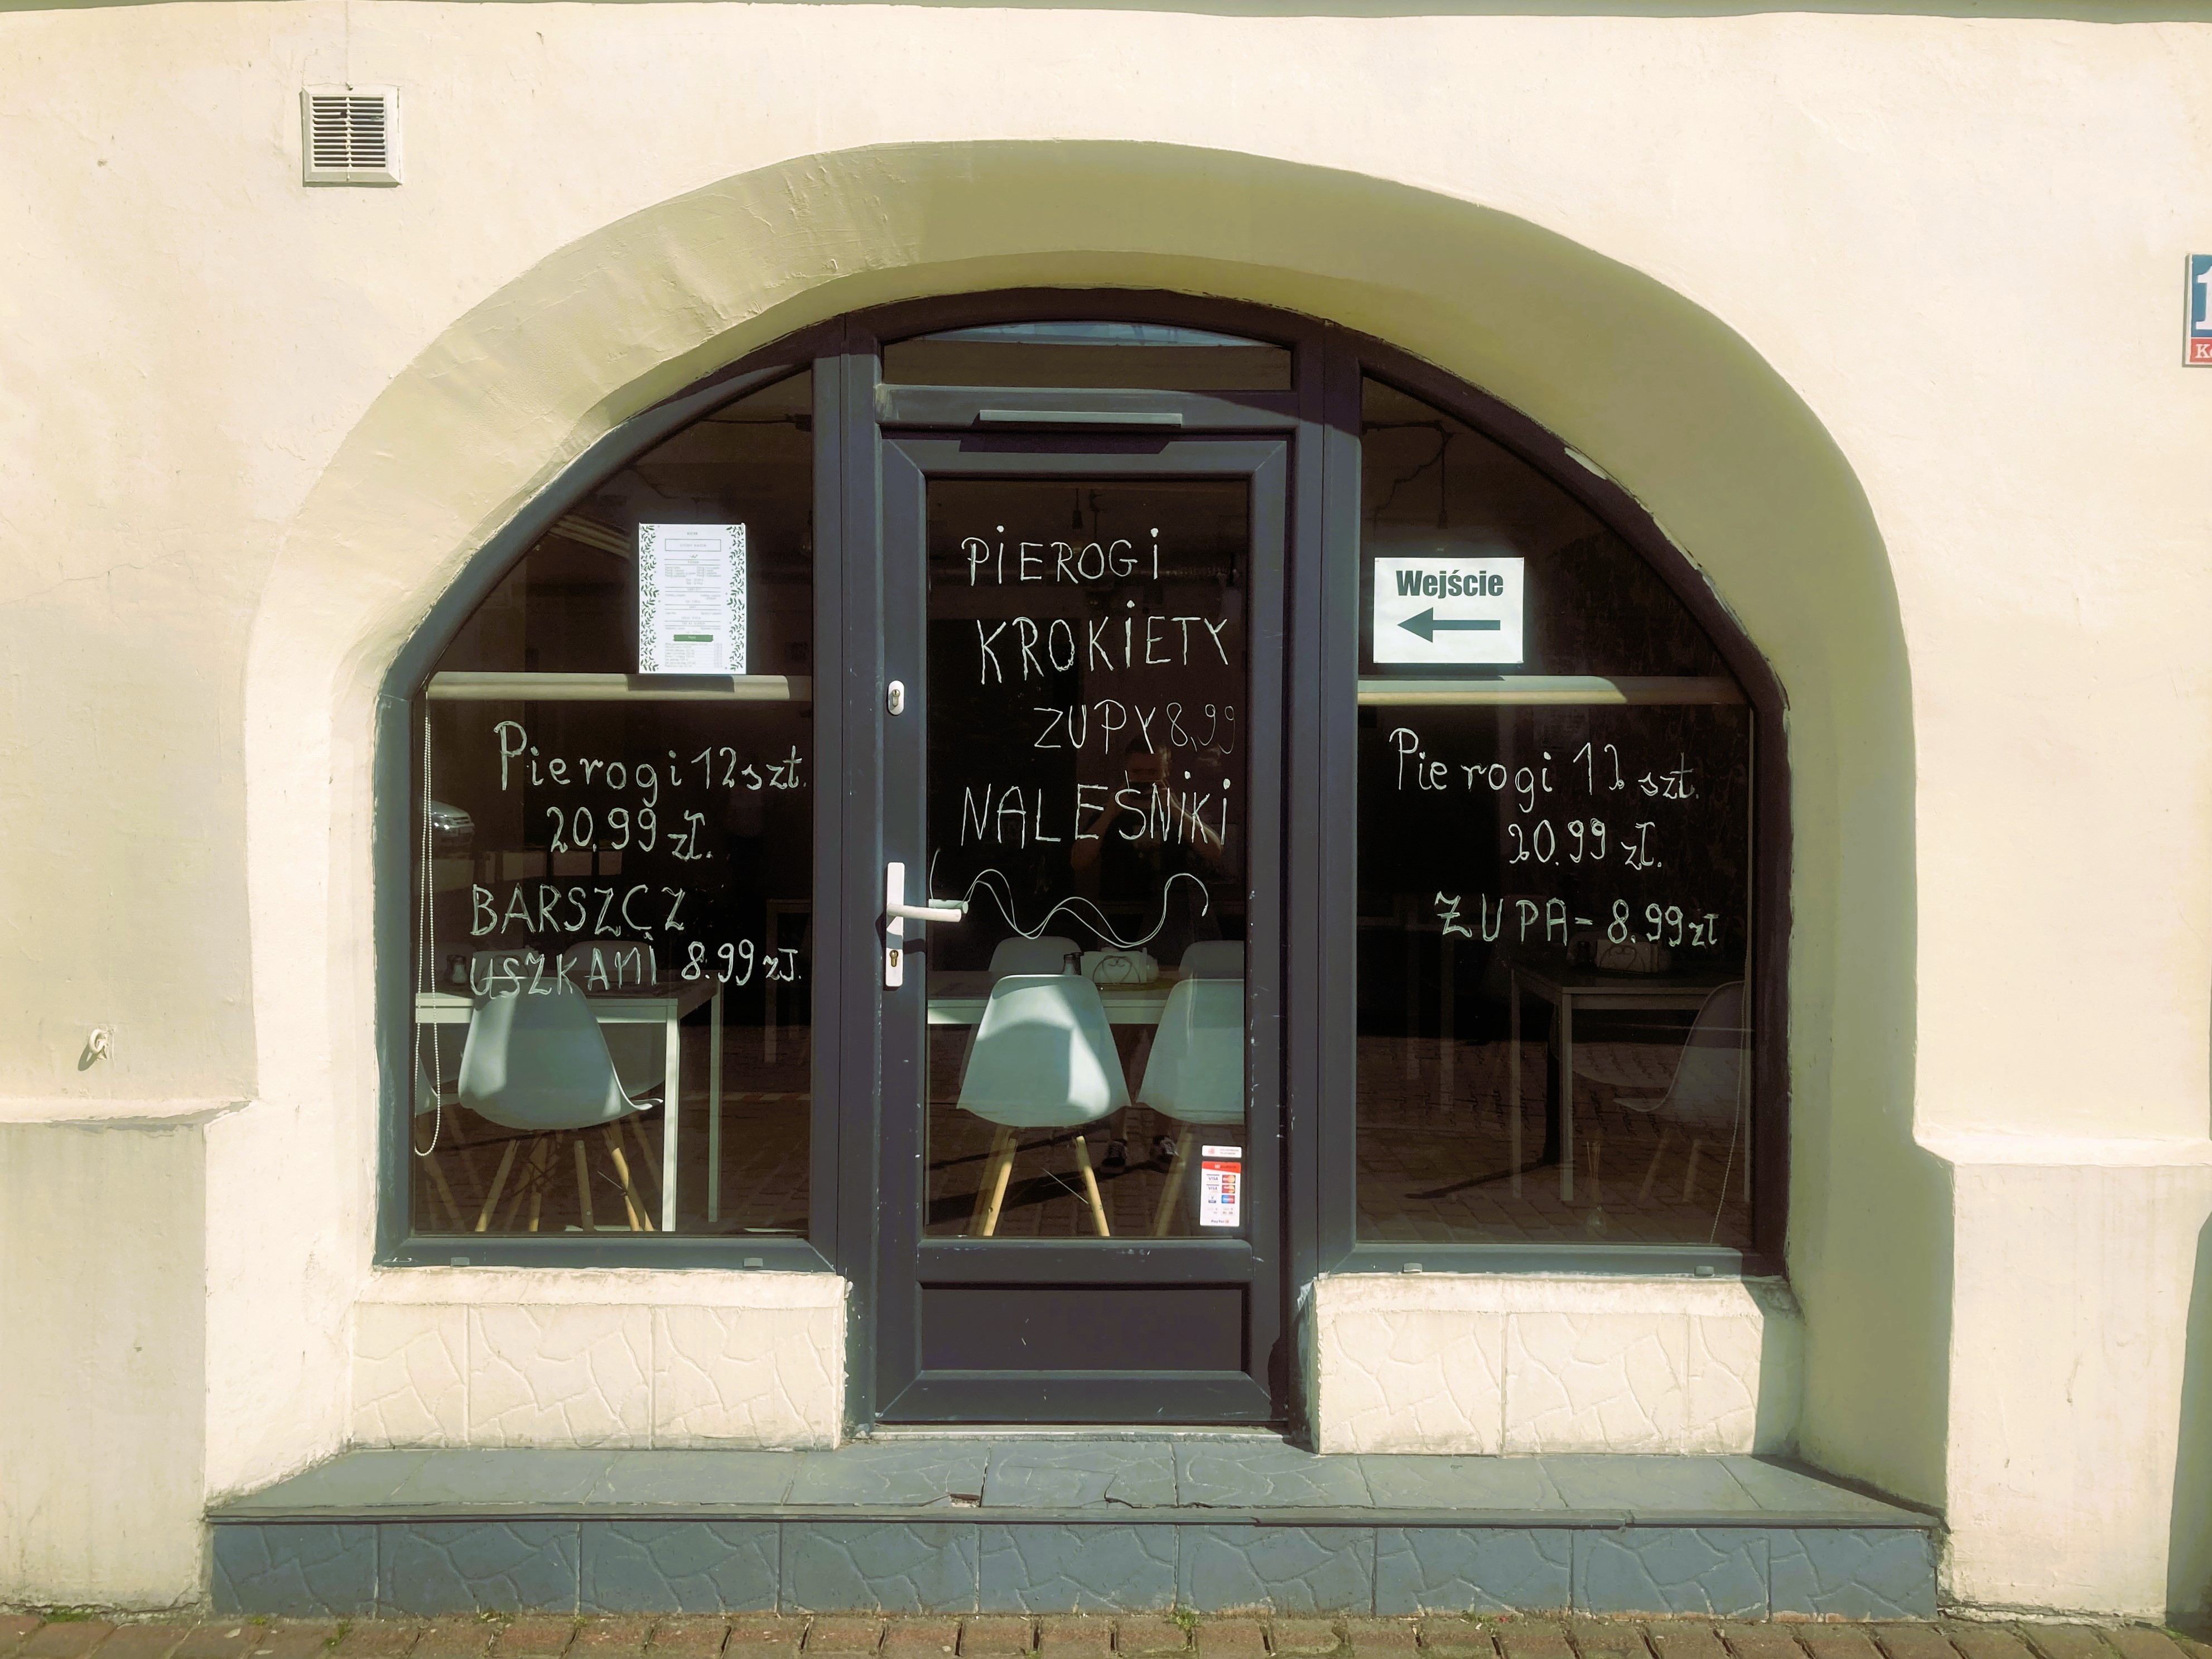 Pierogi 12 szt.
20.99 zł.
BARSZCZ
USZKAMI 8.99 zł.
PIEROGI
KROKIETY
ZUPY 8,99
NALEŚNIKI
Wejście
Pierogi 12 szt.
20.99 zł.
ZUPA - 8.99 zł